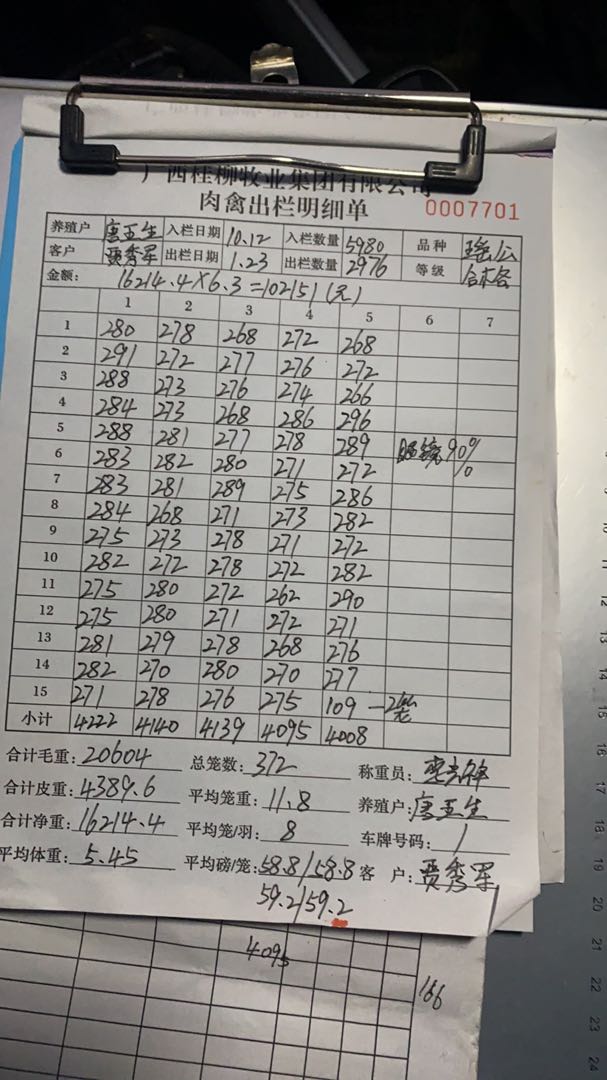 广西桂柳牧业集团有限公司
肉禽出栏明细单 0007701
养殖户 唐五生 入栏日期 10.12 入栏数量 5980 品种
客户 贾秀军 出栏日期 1.23 出栏数量 2976 等级 合格
金额: 16214.4×6.3=102151(元)
1 2 3 4 5 6 7
1 280 278 268 272 268
2 291 272 277 276 272
3 288 273 276 274 266
4 284 273 268 286 296
5 288 281 277 278 289 90%
6 283 282 280 271 272
7 283 281 289 275 286
8 284 268 271 273 282
9 275 273 278 271 272
10 282 272 278 272 282
11 275 280 272 262 290
12 275 280 271 272 271
13 281 279 278 268 276
14 282 270 280 270 277
15 271 278 276 275 109
小计 4222 4140 4139 4095 4008
合计毛重: 20604 总笼数: 372 称重员:
合计皮重: 4389.6 平均笼重: 11.8 养殖户: 唐五生
合计净重: 16214.4 平均笼/羽: 8 车牌号码: /
平均体重: 5.45 平均磅/笼: 58.8/58.8 客 户: 贾秀军
59.2/59.2
4095
166
16
17
18
19
20
21
22
23
24